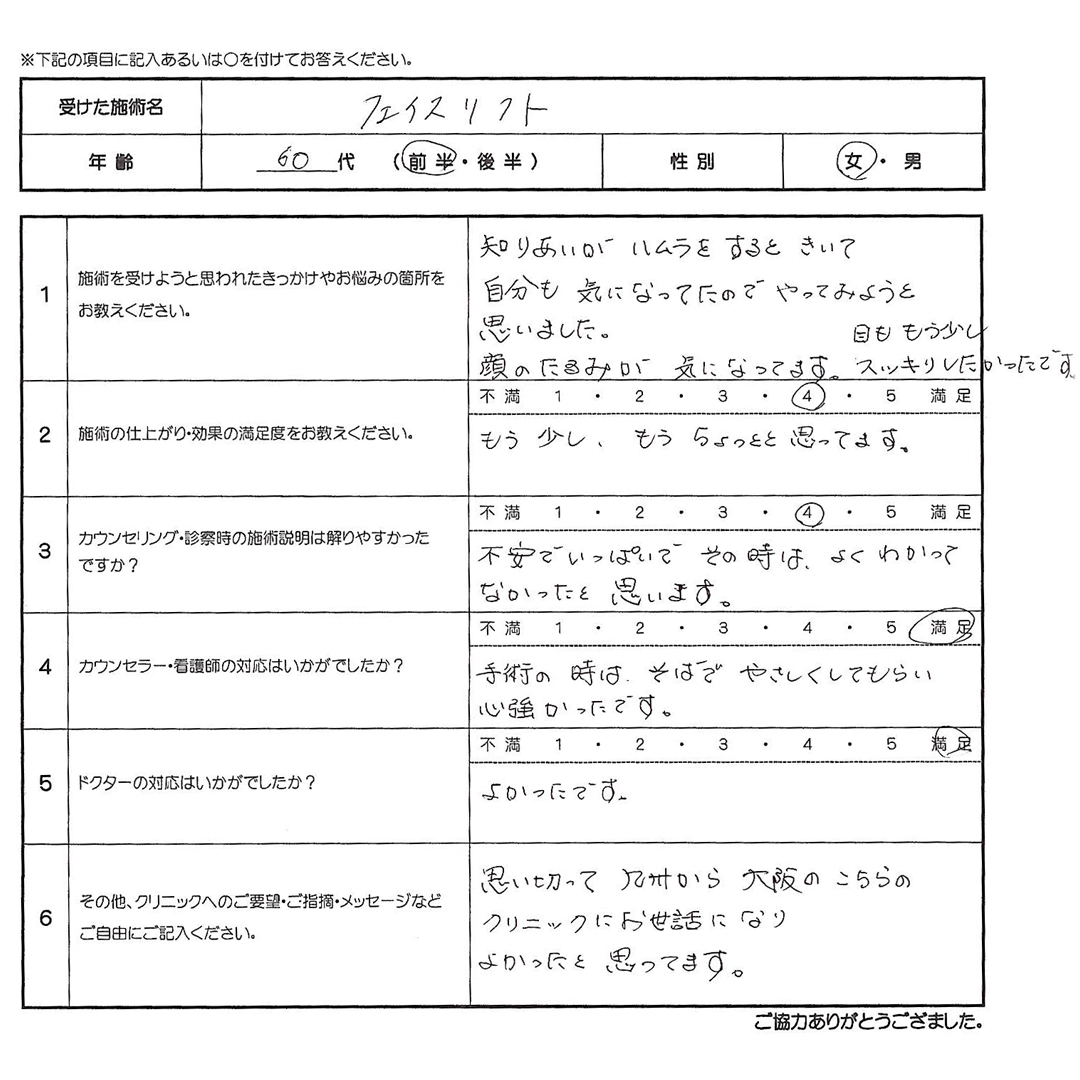 ※下記の項目に記入あるいは〇を付けてお答えください。
受けた施術名 フェイスリフト
年齢 60代 (前半・後半) 性別 女・男
1 施術を受けようと思われたきっかけやお悩みの箇所をお教えください。
知りあいが ハムラをすると きいて
自分も 気になってたので やってみようと
思いました。
顔のたるみが 気になってます。
目も もう少し
スッキリしたかったです
2 施術の仕上がり・効果の満足度をお教えください。
不満 1 ・ 2 ・ 3 ・ 4 ・ 5 満足
もう 少し、もう ちょっとと 思ってます。
3 カウンセリング・診察時の施術説明は解りやすかった
ですか?
不満 1 ・ 2 ・ 3 ・ 4 ・ 5 満足
不安でいっぱいで その時は、よく わかって
なかったと 思います。
4 カウンセラー・看護師の対応はいかがでしたか?
不満 1 ・ 2 ・ 3 ・ 4 ・ 5 満足
手術の 時は、そばで やさしくしてもらい
心強かったです。
5 ドクターの対応はいかがでしたか?
不満 1 ・ 2 ・ 3 ・ 4 ・ 5 満足
よかったです。
6 その他、クリニックへのご要望・ご指摘・メッセージなど
ご自由にご記入ください。
思い切って 九州から 大阪の こちらの
クリニックにお世話になり
よかったと 思ってます。
ご協力ありがとうござました。